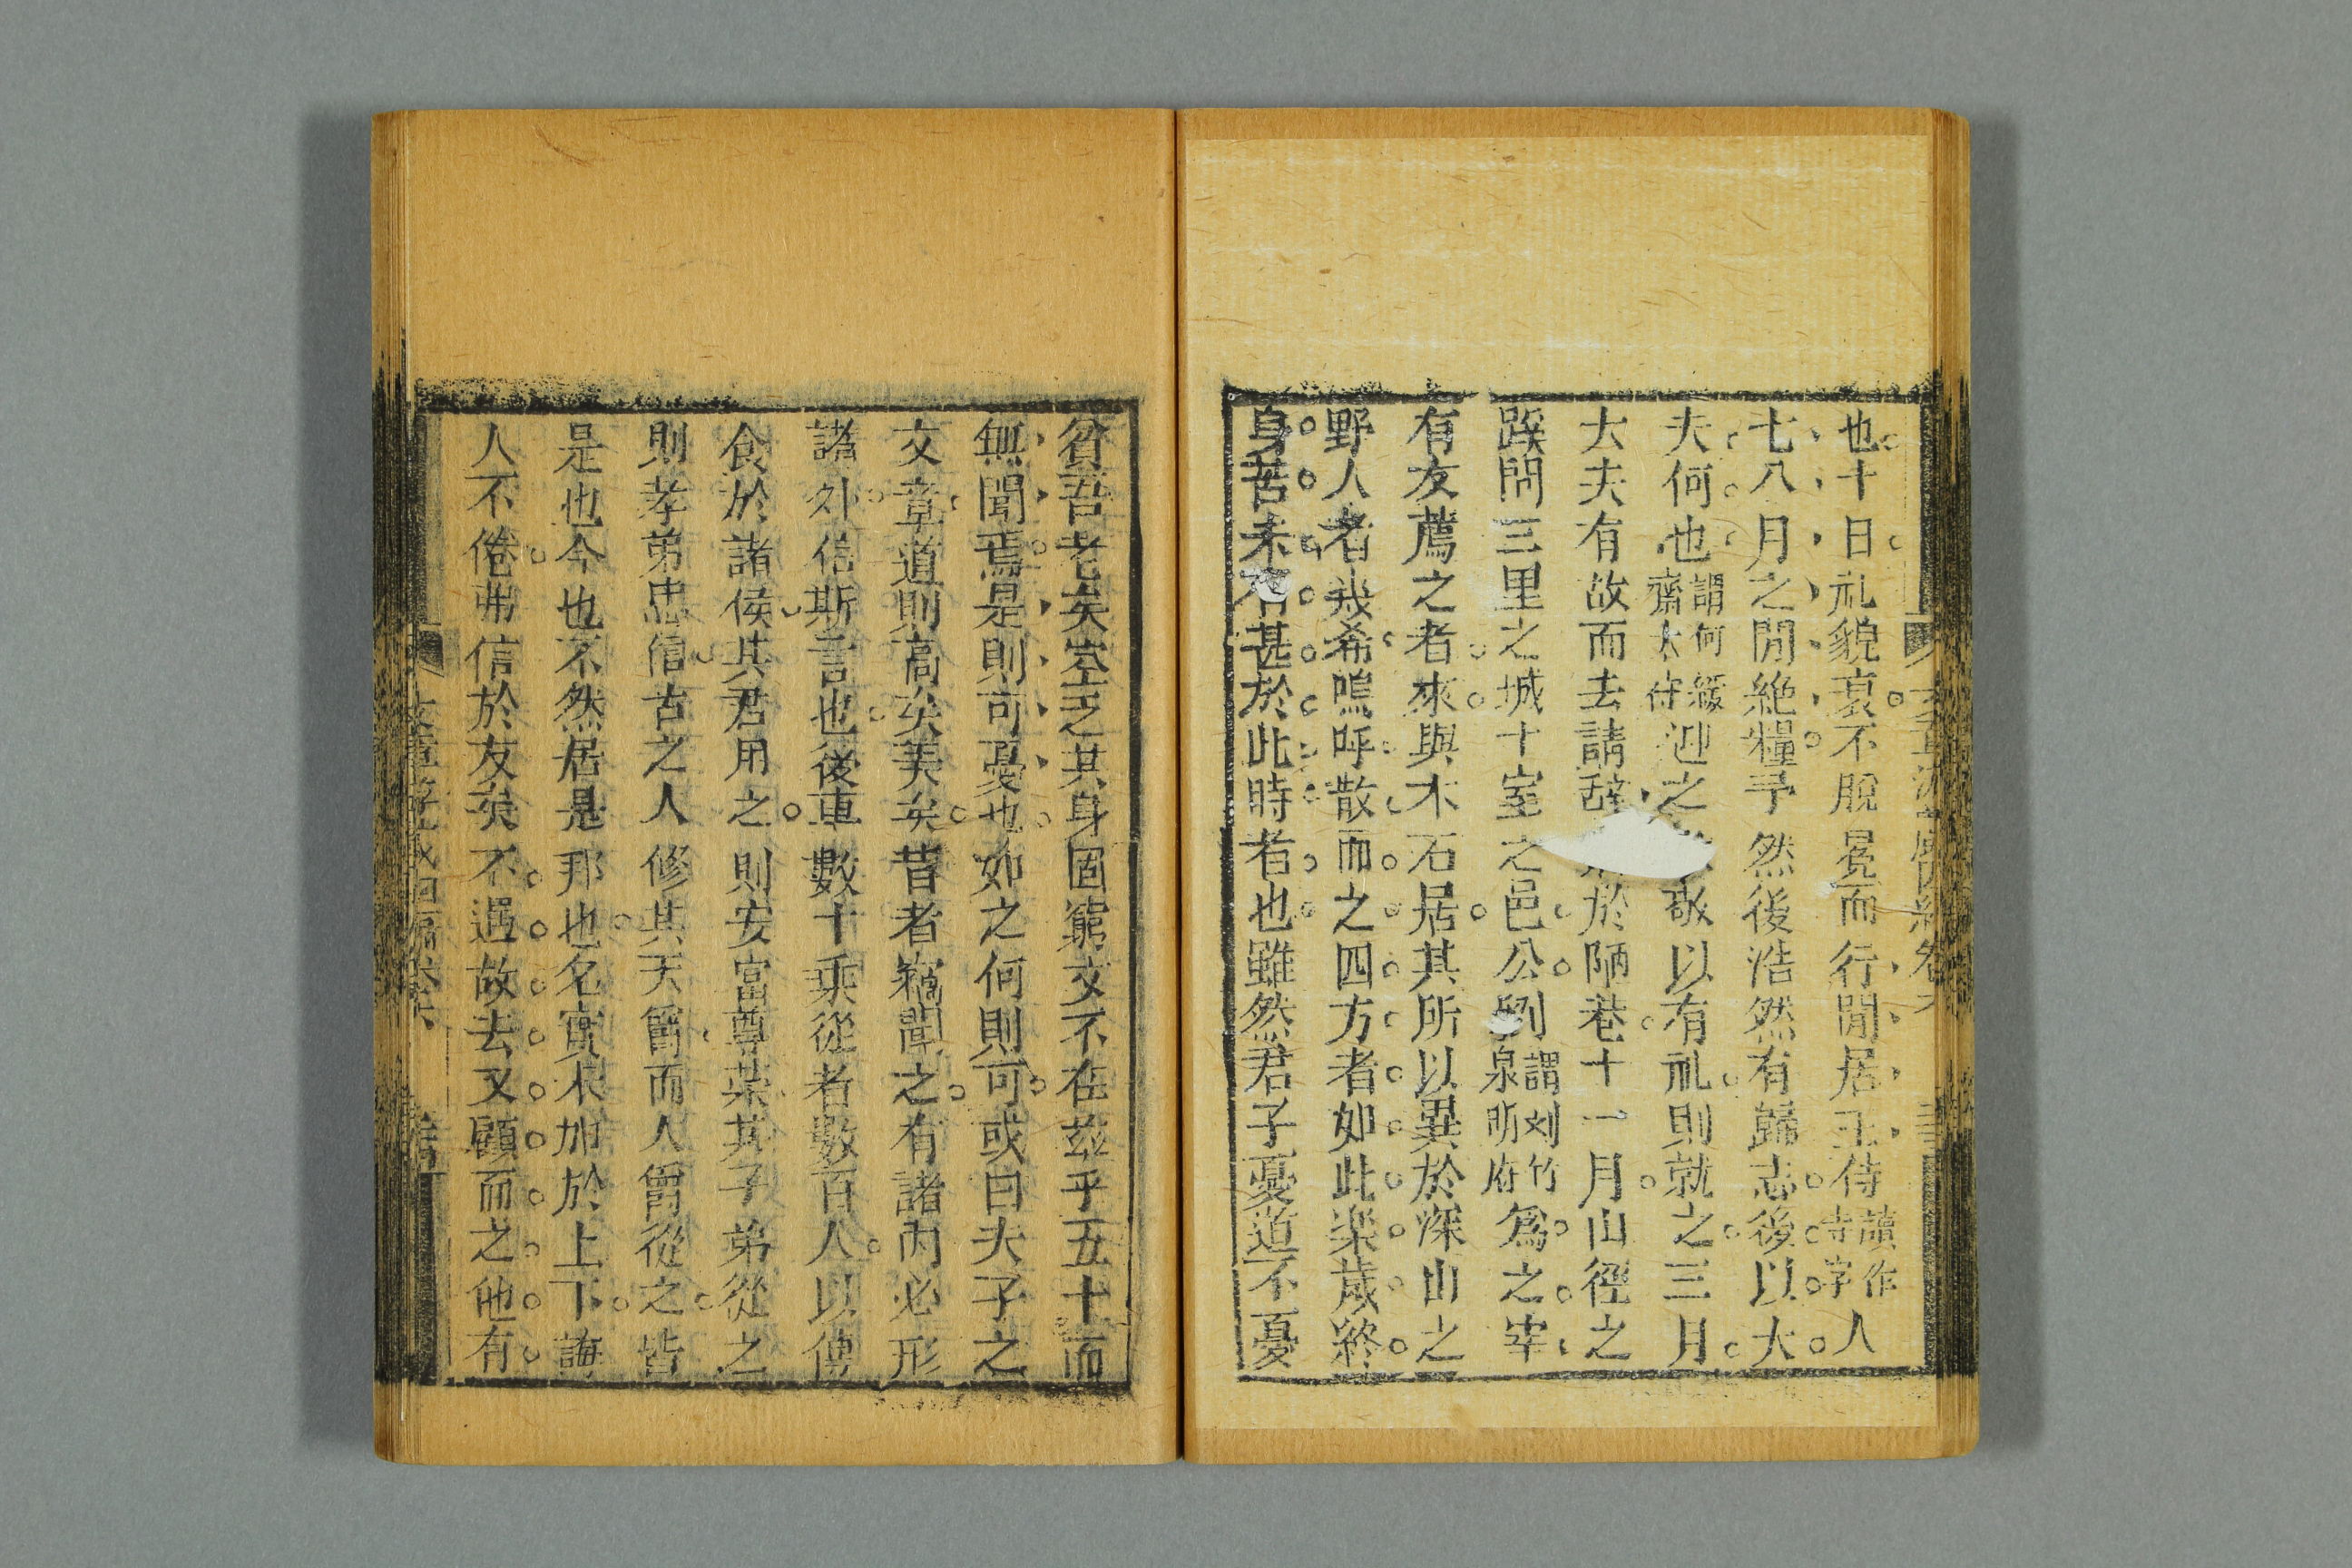 也十日礼貌衰不脫冕而行閒居王侍讀作寺字人
七八月之閒絶糧予然後浩然有歸志後以大
夫何也謂何緩齋太守迎之敬以有礼則就之三月
大夫有故而去請辤於陋巷十一月山徑之
蹊閒三里之城十室之邑公劉謂刘竹泉所府爲之宰
有友薦之者來與木石居其所以異於深山之
野人者幾希嗚呼散而之四方者如此楽歳終
身苦未有甚於此時者也雖然君子憂道不憂
貧吾老矣空乏其身固窮文不在兹乎五十而
無聞焉是則可憂也如之何則可或曰夫子之
文章道則高矣美矣昔者竊聞之有諸内必形
諸外信斯言也後車數十乘從者數百人以傳
食於諸侯其君用之則安富尊荣其子弟從之
則孝弟忠信古之人修其天爵而人爵從之皆
是也今也不然居是邦也名實未加於上下誨
人不倦弗信於友矣不遇故去又顧而之他有